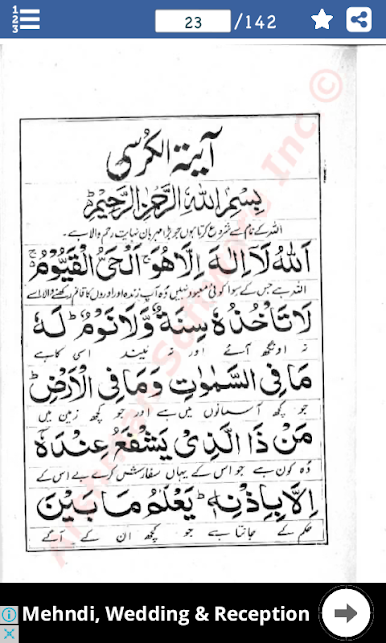 1
2
3
23 /142
آية الكرسي
بِسْمِ اللهِ الرَّحْمٰنِ الرَّحِيْمِ
اللہ کے نام سے شروع کرتا ہوں جو بڑا مہربان نہایت رحم والا ہے۔
اَللهُ لَآ اِلٰهَ اِلَّا هُوَ ۚ اَلْحَيُّ الْقَيُّوْمُ
اللہ ہے جس کے سوا کوئی معبود نہیں وُہ آپ زندہ اور اوروں کا قائم رکھنے والا اسے
لَا تَاْخُذُهٗ سِنَةٌ وَّلَا نَوْمٌ ؕ لَهٗ
نہ اونگھ آئے اور نہ نیند اسی کا ہے
مَا فِي السَّمٰوٰتِ وَمَا فِي الْاَرْضِ ؕ
جو کچھ آسمانوں میں ہے اور جو کچھ زمین میں
مَنْ ذَا الَّذِيْ يَشْفَعُ عِنْدَهٗٓ
وُہ کون ہے جو اس کے یہاں سفارش کرے بے اس کے
اِلَّا بِاِذْنِهٖ ؕ يَعْلَمُ مَا بَيْنَ
حکم کے جانتا ہے جو کچھ ان کے آگے
Mehndi, Wedding & Reception